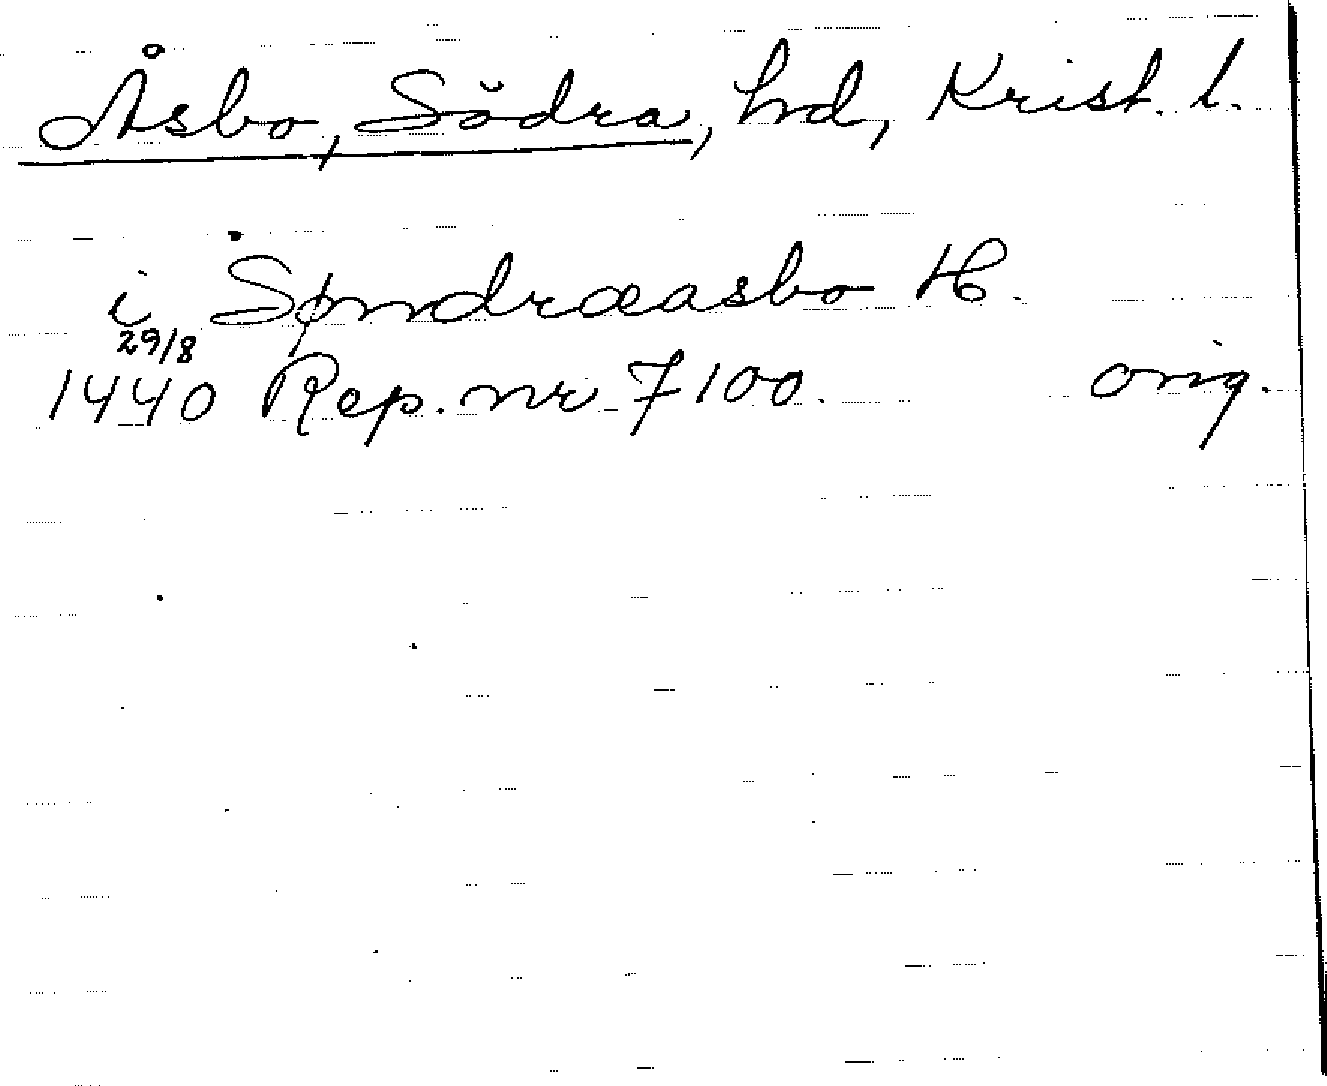 Åsbo, Södra, hd, Krist. l.
i Søndraasbo H.
29/8
1440 Rep. nr 7100. orig.